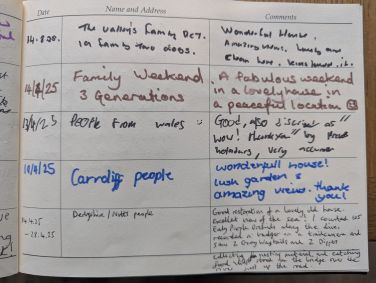 Date Name and Address Comments
The Valleys Family
in family two dogs.
Wonderful House.
Amazing views, lovely and
clean home.
14/4/25 Family Weekend
3 Generations
A fabulous weekend
in a lovely house in
a peaceful location
People from Wales
Good, also described as "
wow! thank you" by
holidays, very
wonderful house!
lush garden &
amazing views. thank
you!
people
14.4.25
-28.4.25
Derbyshire / Notts people
Good restoration of a lovely old house.
Excellent view of the sea! I counted 105
Early Purple Orchids along the lane,
recorded a badger on a trailcam and
saw 2 Grey Wagtails and 2 Dippers
collecting nesting material and catching
the bridge over the
river just up the road